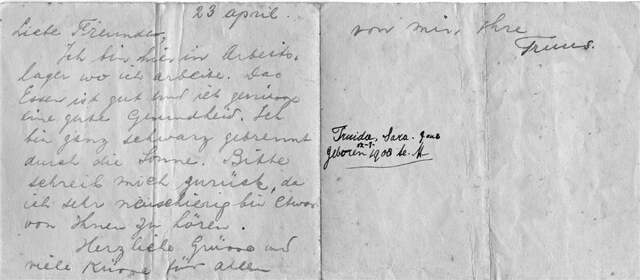 23 april.
Liebe Freunden,
Ich bin hier in Arbeits-
lager wo ich arbeite. Das
Essen ist gut und ich geniesse
eine gute Gesundheid. Ich
bin ganz schwarz gebrennt
durch die Sonne. Bitte
schreib mich zurück, da
ich sehr neuschierig bin etwas
von Ihnen zu hören.
Herzliche Grüsse und
viele Küsse für allen
von mir, Ihre
Truus.
Truida, Sara.
geboren 1908 te A